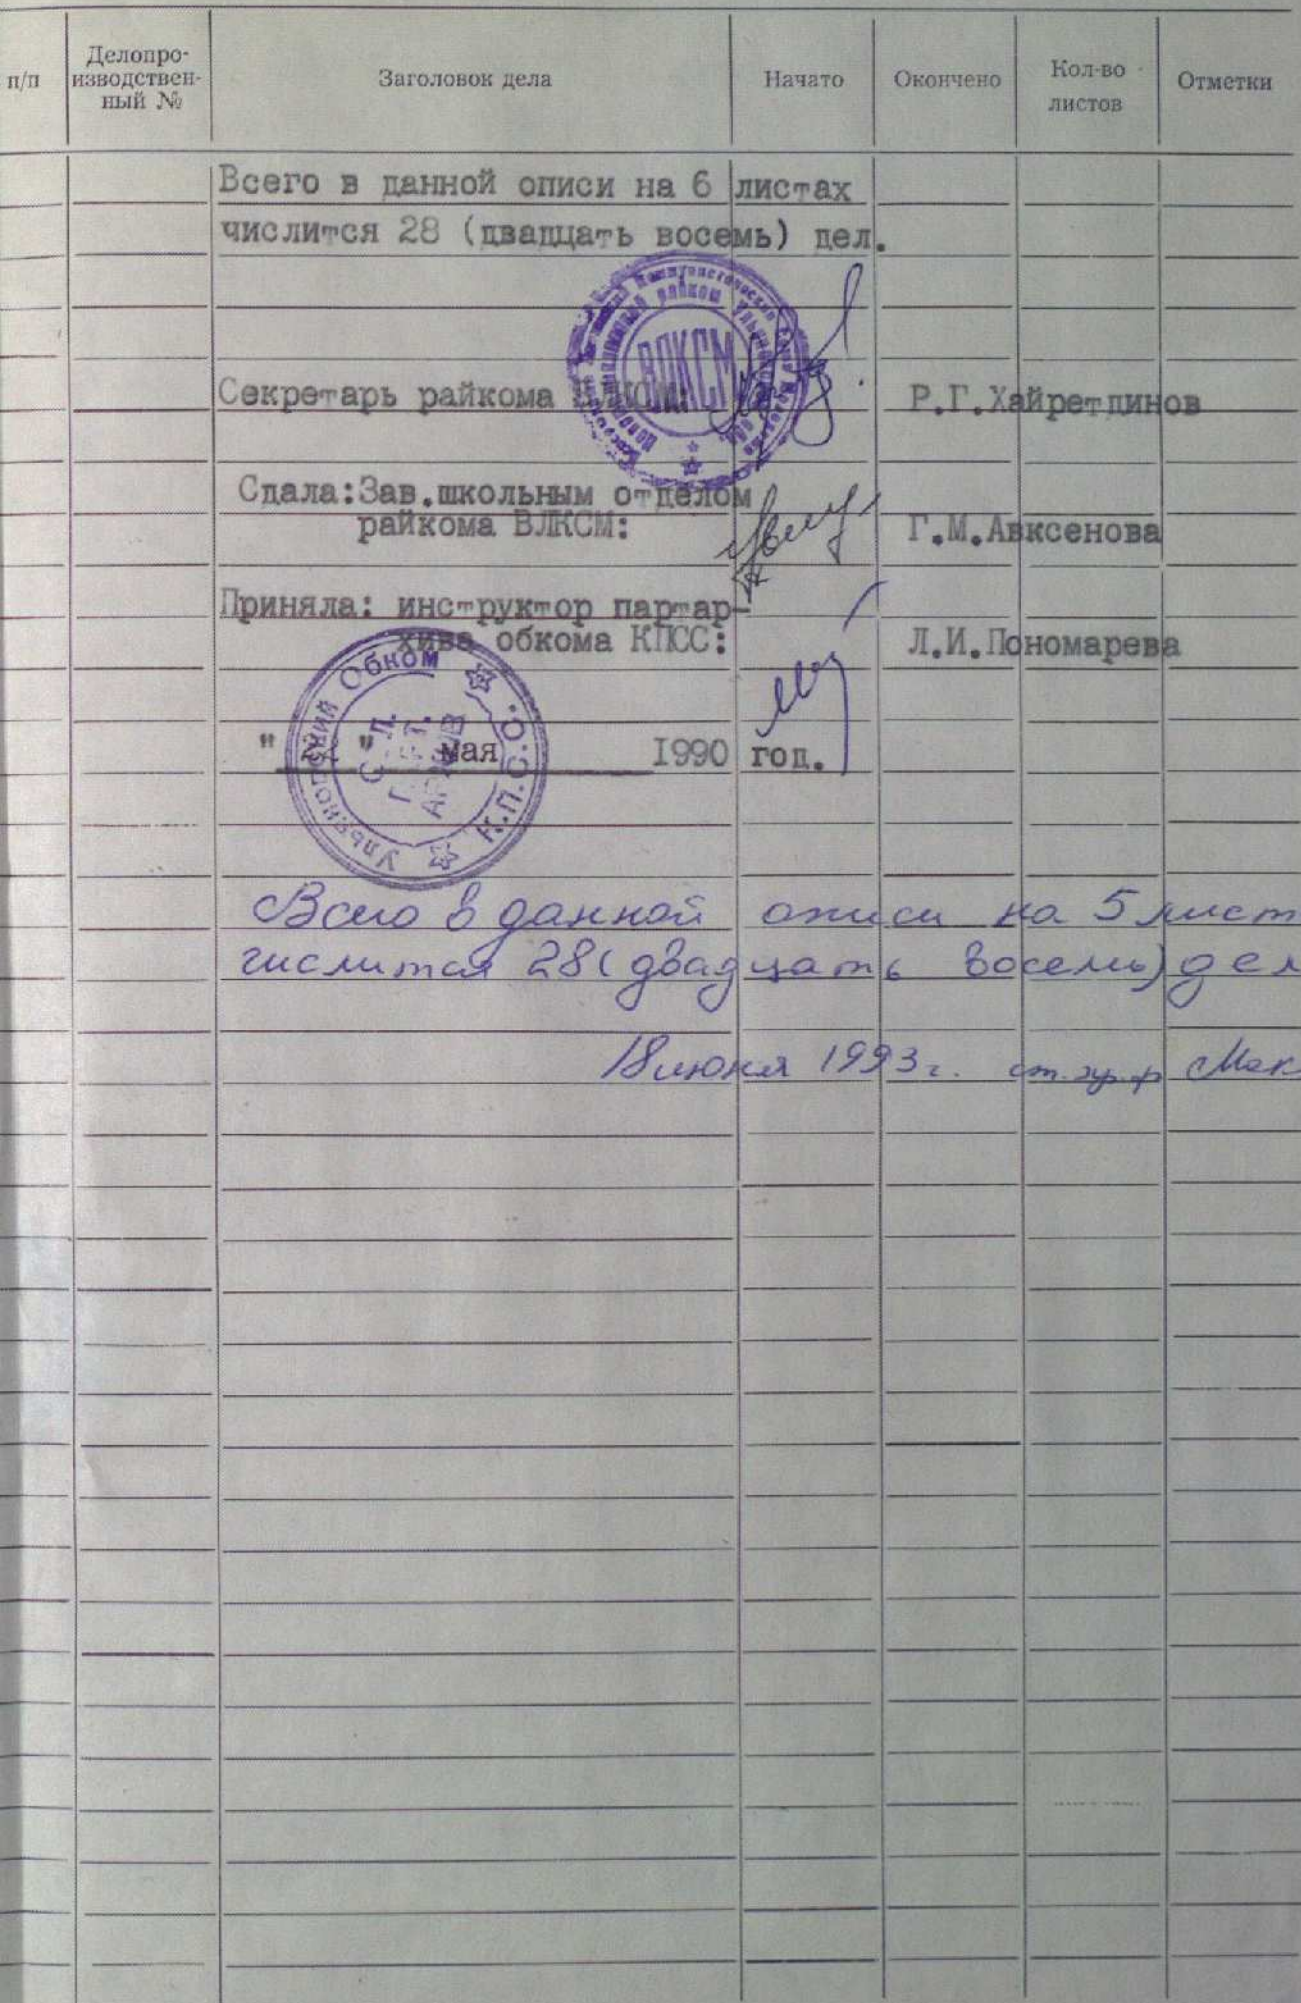 п/п Делопро-
изводствен-
ный № Заголовок дела Начато Окончено Кол-во
листов Отметки
Всего в данной описи на 6 листах
числится 28 (двадцать восемь) дел.
ВЛКСМ
Секретарь райкома ВЛКСМ: Р.Г.Хайретдинов
Сдала: Зав.школьным отделом
райкома ВЛКСМ: Г.М.Авксенова
Приняла: инструктор партар-
хива обкома КПСС: Л.И.Пономарева
Ульяновский Обком К.П.С.С.
" " мая 1990 год.
Всего в данной описи на 5 лист
числится 28 (двадцать восемь) дел
18 июня 1993 г. ст. Мак